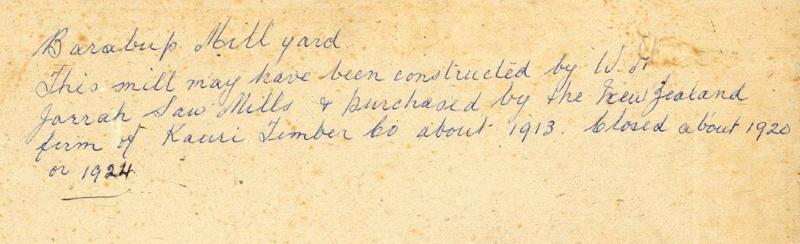 Barabup Mill yard.
This mill may have been constructed by W.A.
Jarrah Saw Mills & purchased by the New Zealand
firm of Kauri Timber Co about 1913. Closed about 1920
or 1924